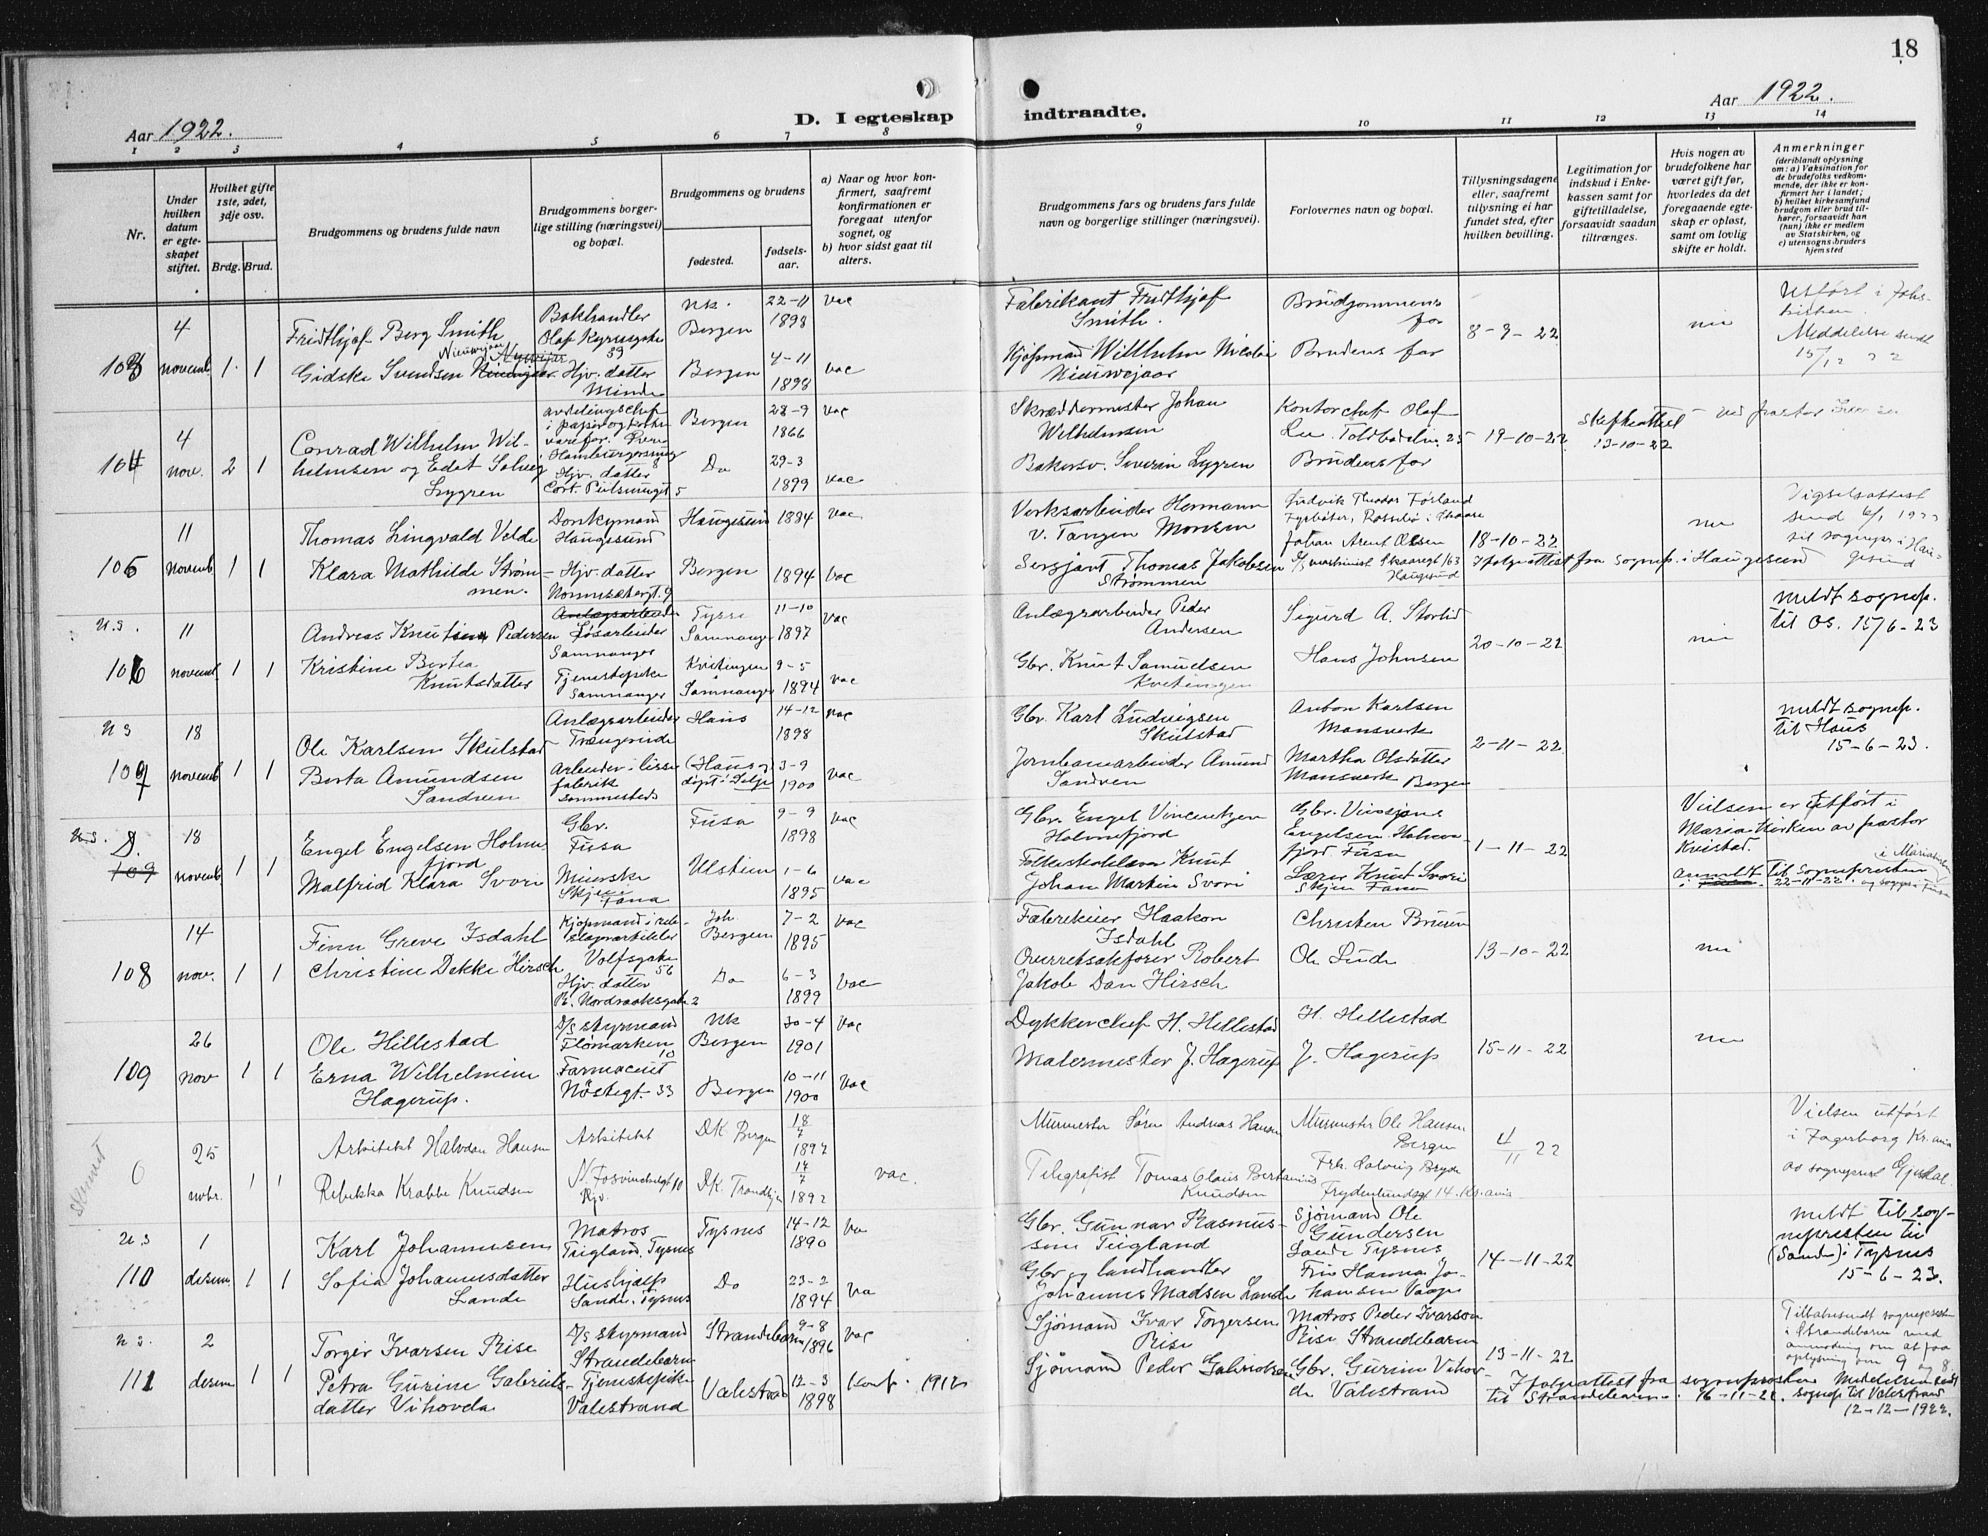 18
Aar 1922.
D. I egteskap
indtraadte.
Aar 1922.
1 2 3 4 5 6 7 8 9 10 11 12 13 14
Nr.
Under hvilken datum er egteskapet stiftet.
Hvilket gifte 1ste, 2det, 3dje osv.
Brdg. Brud.
Brudgommens og brudens fulde navn
Brudgommens borgerlige stilling (næringsvei) og bopæl.
Brudgommens og brudens
fødested.
fødselsaar.
a) Naar og hvor konfirmert, saafremt konfirmationen er foregaat utenfor sognet, og
b) hvor sidst gaat til alters.
Brudgommens fars og brudens fars fulde navn og borgerlige stillinger (næringsvei).
Forlovernes navn og bopæl.
Tillysningsdagene eller, saafremt tillysning ei har fundet sted, efter hvilken bevilling.
Legitimation for indskud i Enkekassen samt for giftetilladelse, forsaavidt saadan tiltrænges.
Hvis nogen av brudefolkene har været gift før, hvorledes da det foregaaende egteskap er opløst, samt om lovlig skifte er holdt.
Anmerkninger
(deriblandt oplysning om: a) Vaksination for de brudefolks vedkommende, der ikke er konfirmert her i landet; b) hvilket kirkesamfund brudgom eller brud tilhører, forsaavidt han (hun) ikke er medlem av Statskirken, og c) utensogns bruders hjemsted
103 4 novemb. 1 1
Fridthjof Berg Smith
Gidske Svendsen Nieuwejaar
Bokhandler
Olaf Kyrresgate 59
Hjv. datter
Minde
Bergen 22-11 1898 vac
Bergen 4-11 1898 vac
Fabrikant Fridthjof Smith.
Kjøpmand Willhelm Nicolai Nieuwejaar
Brudgommens far
Brudens far
8-9-22
nei
Utført i Johskirken.
Meddelelse sendt 15/12 22
104 4 nov. 2 1
Conrad Wilhelm Wilhelmsen og Edet Solveig Lygren
Hjv. datter
Bergen 28-9 1866 vac
Do 29-3 1899 vac
Skræddermester Johan Wilhelmsen
Bakersv. Severin Lygren
Kontorchef Olaf
Brudens far
19-10-22
Skifteattest 13-10-22
105 11 novemb 1 1
Thomas Lingvald Velde
Klara Mathilde Strømmen.
Donkymand
Haugesund
Hjv. datter
Haugesund 1884 vac
Bergen 1894 vac
Verksarbeider Hermann v. Tangen Monsen
Sersjant Thomas Jakobsen Strømmen
Johan Arent Olsen
Haugesund
18-10-22
Ifølge attest fra sognep. i Haugesund
nei
Vigselsattest send 6/1 1923 til sognepr. i Haugesund
U.S.
106 11 novemb 1 1
Andreas Knutsen Pedersen
Kristine Bertea Knutsdatter
Anlægsarbeider
Løsarbeider
Samnanger
Tjenestepike
Samnanger
Tysse Samnanger 11-10 1897 vac
Kvitingen Samnanger 9-5 1894 vac
Anlægsarbeider Peder Andersen
Gbr. Knut Samuelsen Kvitingen
Sigurd A. Storlid
Hans Johnsen
20-10-22
nei
meldt sognep. til Os. 15/6-23
U S
107 18 novemb 1 1
Ole Karlsen Skulstad
Berta Amundsen Sandven
Anlægsarbeider
Trengereide
Arbeider i lissefabrik
sammesteds
Haus 14-12 1898 vac
(Haus og døpt i Dale 3-9 1900 vac
Gbr. Karl Ludvigsen Skulstad
Jernbanearbeider Amund Sandven
Anton Karlsen
Mansverk
Martha Olsdatter
Mansverk Bergen
2-11-22
meldt sognep. til Haus
15-6-23.
U.S.
D. 109 18 novemb 1 1
Engel Engelsen Holmefjord
Malfrid Klara Svori
Gbr.
Fusa
Skjei i Fana
Fusa 9-9 1898 vac
Ulstein 1-6 1895 vac
Gbr. Engel Vincentsen Holmefjord
Folkeskolelærer Knut Johan Martin Svori
Gbr. Vinsjans Engelsen Holmefjord. Fusa
Lærer Knut Svori
Skjen Fana
1-11-22
Vielsen er utført i Mariakirken av pastor Kvistad.
Anmeldt til Sognepresten i Mariakirken
22-11-22. og sognep. i Fusa
108 14 nov. 1 1
Finn Greve Isdahl
Christine Dekke Hirsch
Volfsgate 56
Hjv. datter
R. Nordraaksgate 2
Joh Bergen 7-2 1895 vac
Do 6-3 1899 vac
Fabrikeier Haakon Isdahl
Overretsakfører Robert Jakob Dan Hirsch
Christen Bruun
Ole Lude
13-10-22
nei
109 26 nov 1 1
Ole Hillestad
Erna Wilhelmine Hagerup.
D/s styrmand
Flømarken 10
Farmaceut
Nøstegt. 33
Nk Bergen 30-4 1901 vac
Bergen 10-11 1900 vac
Dykkerchef H. Hellestad
Malermester J. Hagerup
H. Hellestad
J. Hagerup
15-11-22
nei
0 25 novbr. 1 1
Arkitekt Halvdan Hansen
Rebekka Krabbe Knudsen
Arkitekt
N. Fosvindselgt 10
Hjv.
DK. Bergen 18/7 1892
DK. Trondhjem 17/7 1892 vac.
Murmester Søren Andreas Hansen
Telegrafist Tomas Claus Bertanius Knudsen
Murmester Ole Hansen Bergen
Frk. Solveig Bryde
Frydenlundsgt 14. Kr.ania
4/11 22
Vielsen utført i Fagerborg Kr.ania av sogneprest Gjesdal
U.S
110 1 desem 1 1
Karl Johannesen
Sofia Johannesdatter Lande
Matros
Teigland, Tysnes
Hushjælp
Sande, Tysnes
Tysnes 14-12 1890 va
Do 23-2 1894 va
Gbr. Gunnar Rasmussen Teigland
Gbr og landhandler Johannes Madsen Lande
Sjømand Ole Gundersen
Lande Tysnes
Frk Hanna Johansen Vaage
14-11-22
meldt til sognepresten til (Sande) i Tysnes
15-6-23.
U S.
111 2 desem 1 1
Torger Ivarsen Riise
Petra Gurine Gabrielsdatter Vihovda
D/s styrmand
Strandebarm
Tjenestepike
Valestrand
Strandebarm 9-8 1896 vac
Valestrand 12-3 1898 konf. 1912
Sjømand Ivar Torgersen Riise
Sjømand Peder Gabrielsen
Matros Peder Ivarson
Riise Strandebarm
Gbr. Gurine Vihovde Valestrand
13-11-22
Ifølge attest fra sognepresten til Strandebarm. 16-11-22.
Tilbakesendt sognepresten i Strandebarm med anmerkning om at faa oplysning om 9 og 8.
Meddelelse sendt sognep. til Valestrand
12-12-1922.